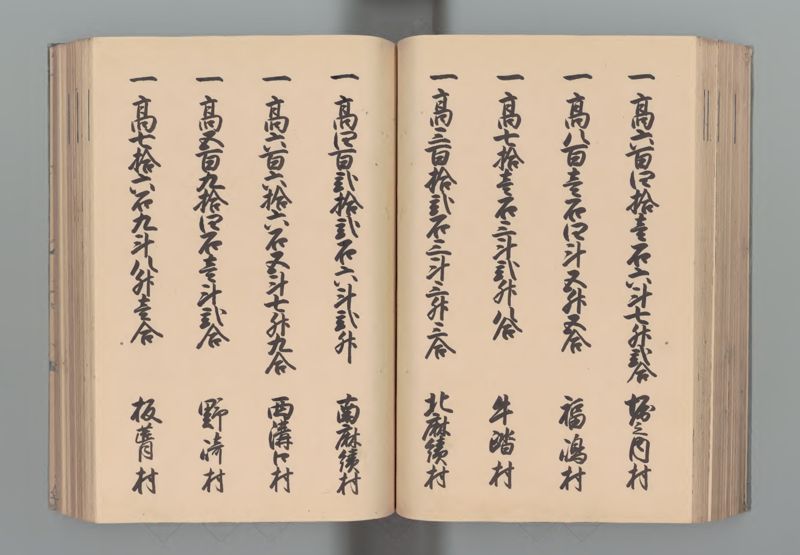 一高六百四拾壱石六斗七升弐合 堀之内村
一高八百壱石四斗五升五合 福嶋村
一高七拾壱石三斗弐升八合 牛踏村
一高三百拾弐石三斗三升三合 北麻績村
一高四百弐拾弐石六斗弐升 南麻績村
一高六百六拾六石五斗七升九合 西溝口村
一高五百九拾四石壱斗弐合 野崎村
一高七拾六石九斗八升壱合 板蕑村